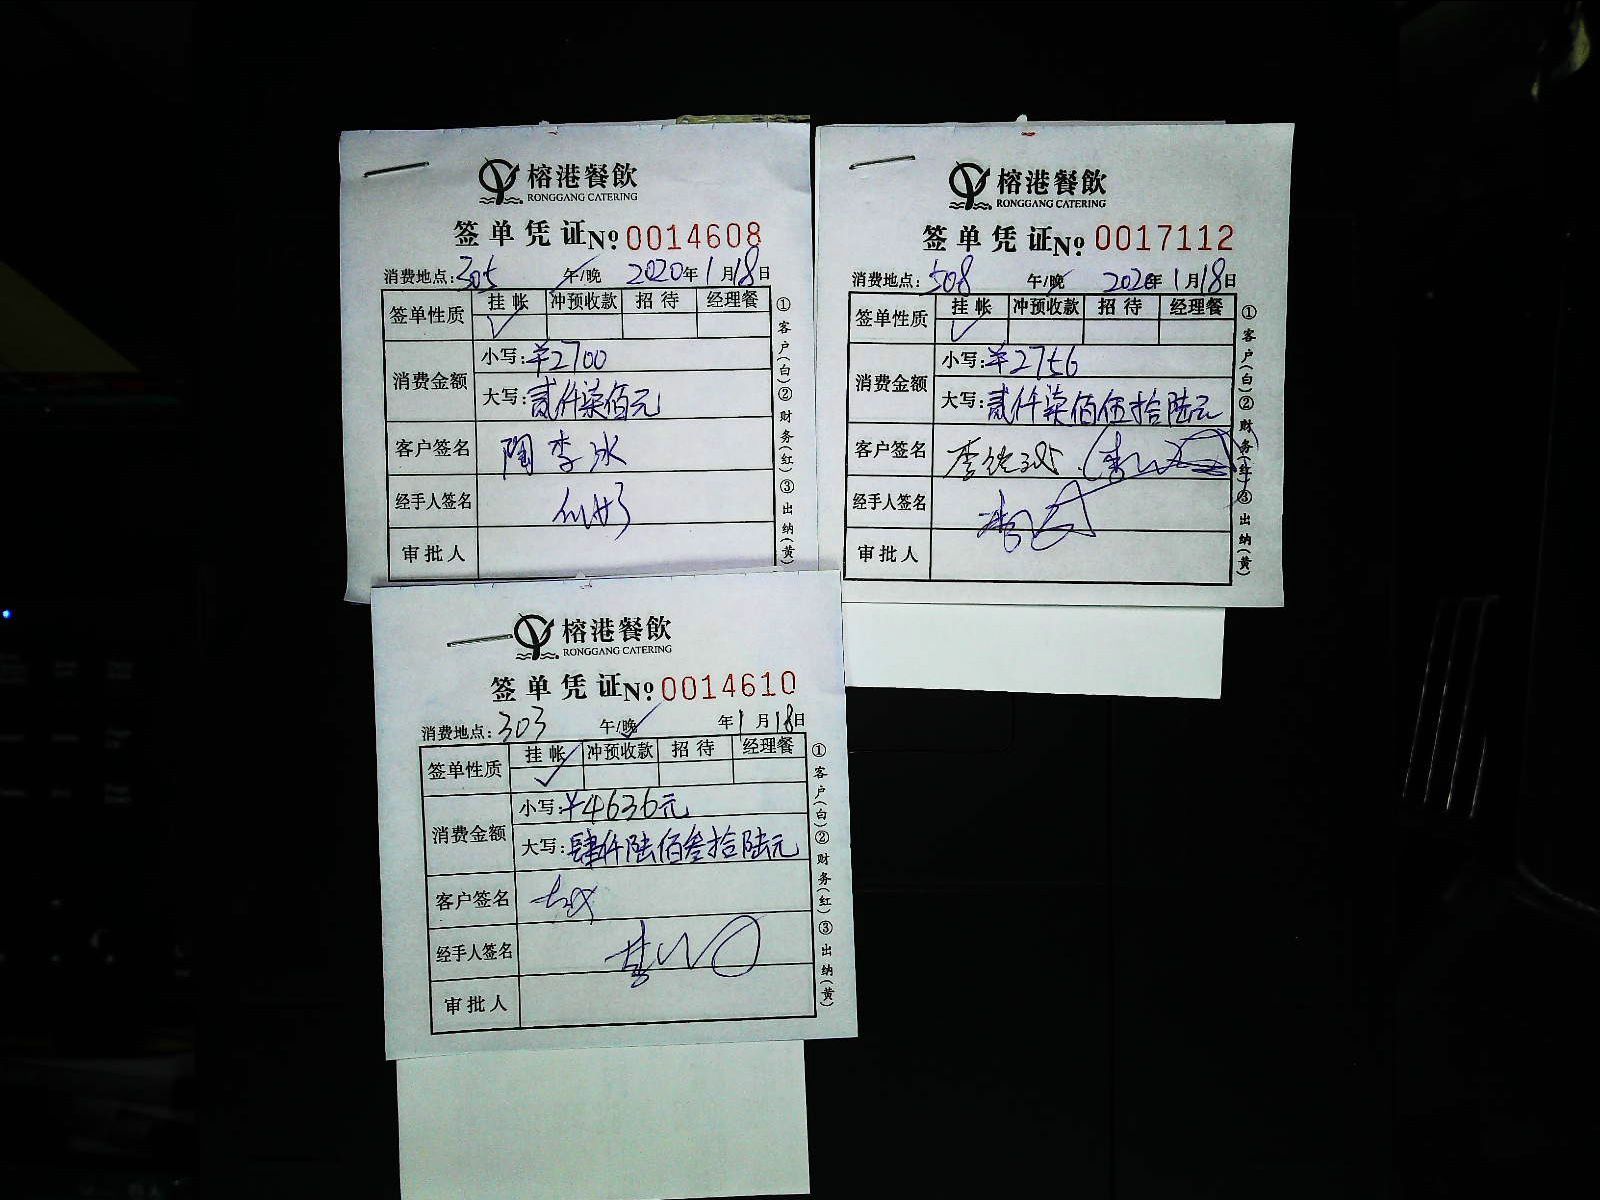 榕港餐飲
RONGGANG CATERING
签单凭证 №0014608
消费地点:305 午/晚 2020年1月18日
签单性质 挂帐 冲预收款 招待 经理餐
消费金额 小写:¥2700
大写:貳仟柒佰元
客户签名 陶李冰
经手人签名
审批人
①客户(白)②财务(红)③出纳(黄)
榕港餐飲
RONGGANG CATERING
签单凭证 №0017112
消费地点:508 午/晚 2020年1月18日
签单性质 挂帐 冲预收款 招待 经理餐
消费金额 小写:¥2756
大写:貳仟柒佰伍拾陆元
客户签名 李
经手人签名
审批人
①客户(白)②财务(红)③出纳(黄)
榕港餐飲
RONGGANG CATERING
签单凭证 №0014610
消费地点:303 午/晚 年1月18日
签单性质 挂帐 冲预收款 招待 经理餐
消费金额 小写:¥4636元
大写:肆仟陆佰叁拾陆元
客户签名
经手人签名
审批人
①客户(白)②财务(红)③出纳(黄)